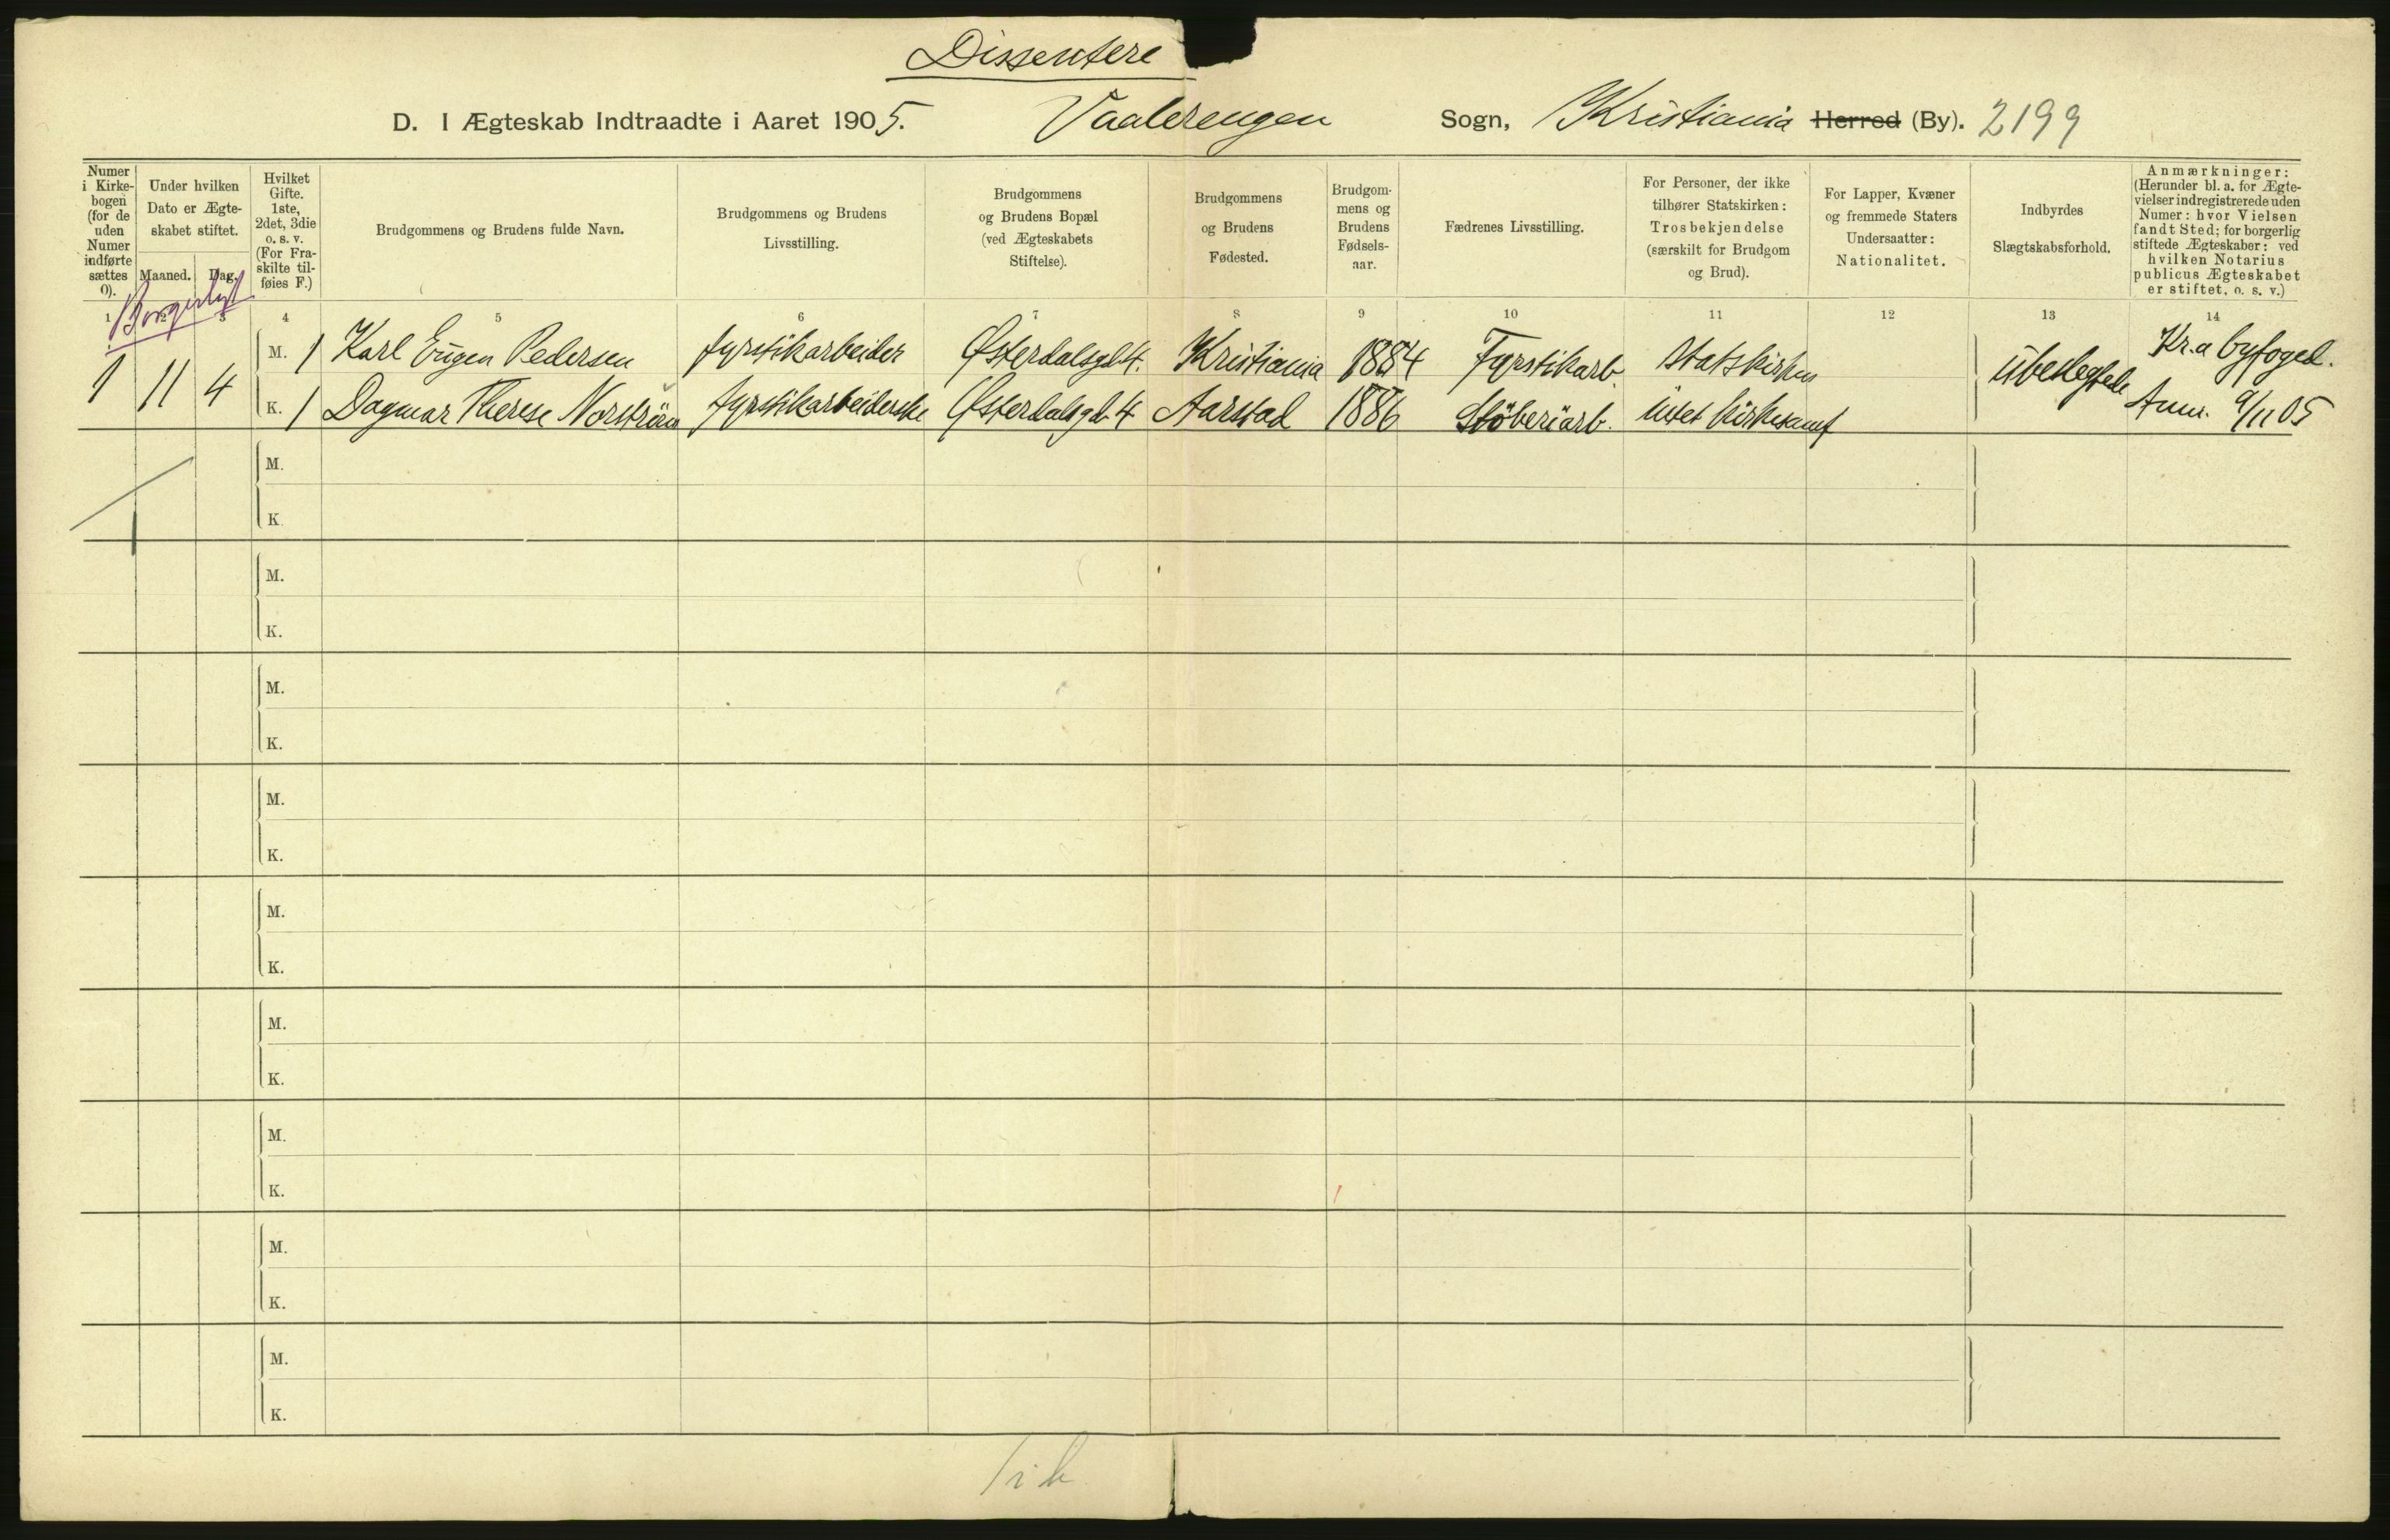 Dissentere
D. I Ægteskab Indtraadte i Aaret 1905. Vaalerengen Sogn, Kristiania Herred (By). 2199
Numer i Kirkebogen (for de uden Numer indførte sættes 0).
Under hvilken Dato er Ægteskabet stiftet.
Maaned. Dag.
Hvilket Gifte. 1ste, 2det, 3die o. s. v. (For Fraskilte tilføies F.)
Brudgommens og Brudens fulde Navn.
Brudgommens og Brudens Livsstilling.
Brudgommens og Brudens Bopæl (ved Ægteskabets Stiftelse).
Brudgommens og Brudens Fødested.
Brudgommens og Brudens Fødselsaar.
Fædrenes Livsstilling.
For Personer, der ikke tilhører Statskirken: Trosbekjendelse (særskilt for Brudgom og Brud).
For Lapper, Kvæner og fremmede Staters Undersaatter: Nationalitet.
Indbyrdes Slægtskabsforhold.
Anmærkninger: (Herunder bl. a. for Ægtevielser indregistrerede uden Numer: hvor Vielsen fandt Sted; for borgerlig stiftede Ægteskaber: ved hvilken Notarius publicus Ægteskabet er stiftet, o. s. v.)
Borgerligt
1 2 3 4 5 6 7 8 9 10 11 12 13 14
M. 1 Karl Eugen Pedersen fyrstikarbeider Østerdalsgd. 4. Kristiania 1884 Fyrstikarb. Statskirken Kr.a byfoged.
1 11 4 ubeslegtede
K. 1 Dagmar Therese Norström fyrstikarbeiderske Østerdalsgd. 4 Aarstad 1886 Stöberiarb. intet kirkesamf Anm. 9/11 05
M.
K.
M.
K.
M.
K.
M.
K.
M.
K.
M.
K.
M.
K.
M.
K.
M.
K.